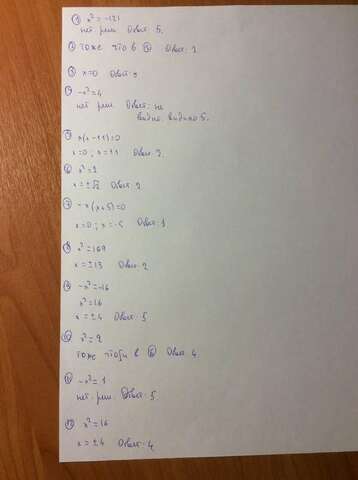 ① x² = -121
нет реш. Ответ: 5.
② тоже что в Ответ: 2
③ x=0 Ответ:
④ -x²=4
нет реш. Ответ: не
видно. видимо 5.
⑤ x(x-11)=0
x=0; x=11 Ответ: 3.
⑥ x²=2
x=±√2 Ответ: 2
⑦ -x(x+5)=0
x=0; x=-5 Ответ: 1
⑧ x²=169
x=±13 Ответ: 2
⑨ -x²=-16
x²=16
x=±4 Ответ: 5
⑩ x²=2
тоже что в ⑥ Ответ: 4
⑪ -x²=1
нет реш. Ответ: 5
⑫ x²=16
x=±4 Ответ: 4